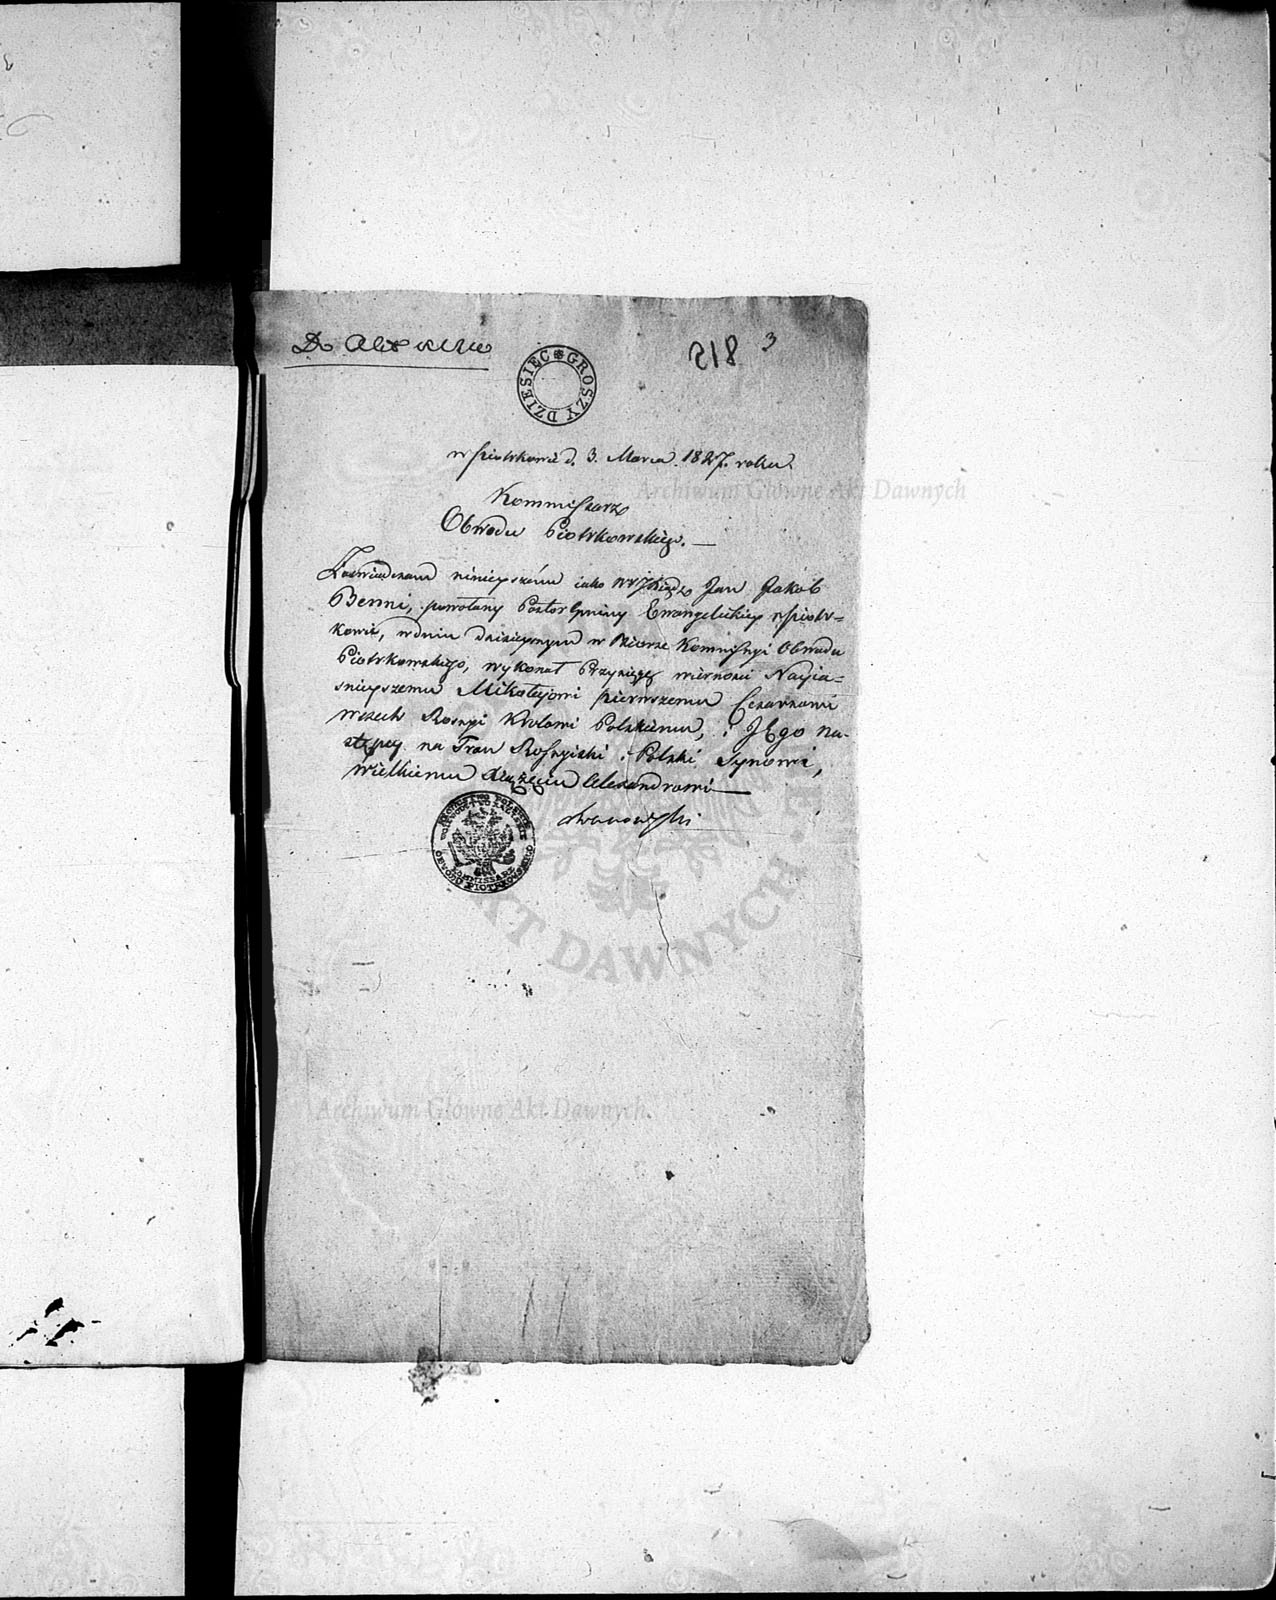 218 3
DZIESIĘC GROSZY
w Piotrkowie d. 3. Marca. 1827. roku.
Kommissarz
Obwodu Piotrkowskiego. —
Zaświadczam ninieyszém iako WJ Xiądz Jan Jakób
Benni, powołany Pastor Gminy Ewangelickiey w Piotr=
kowie, w dniu dzisieyszym w Biórze Kommissyi Obwodu
Piotrkowskiego, wykonał Przysięgę wierności Nayia=
śnieyszemu Mikołajowi pierwszemu Cesarzowi
wszech Rossyi Królowi Polskiemu, i JEgo na-
stępcy na Tron Rossyiski i Polski Synowi,
Wielkiemu Xiążęciu Alexandrowi —
KOMMISSARZ OBWODU PIOTRKOWSKIEGO
Archiwum Główne Akt Dawnych
AKT DAWNYCH
Archiwum Główne Akt Dawnych